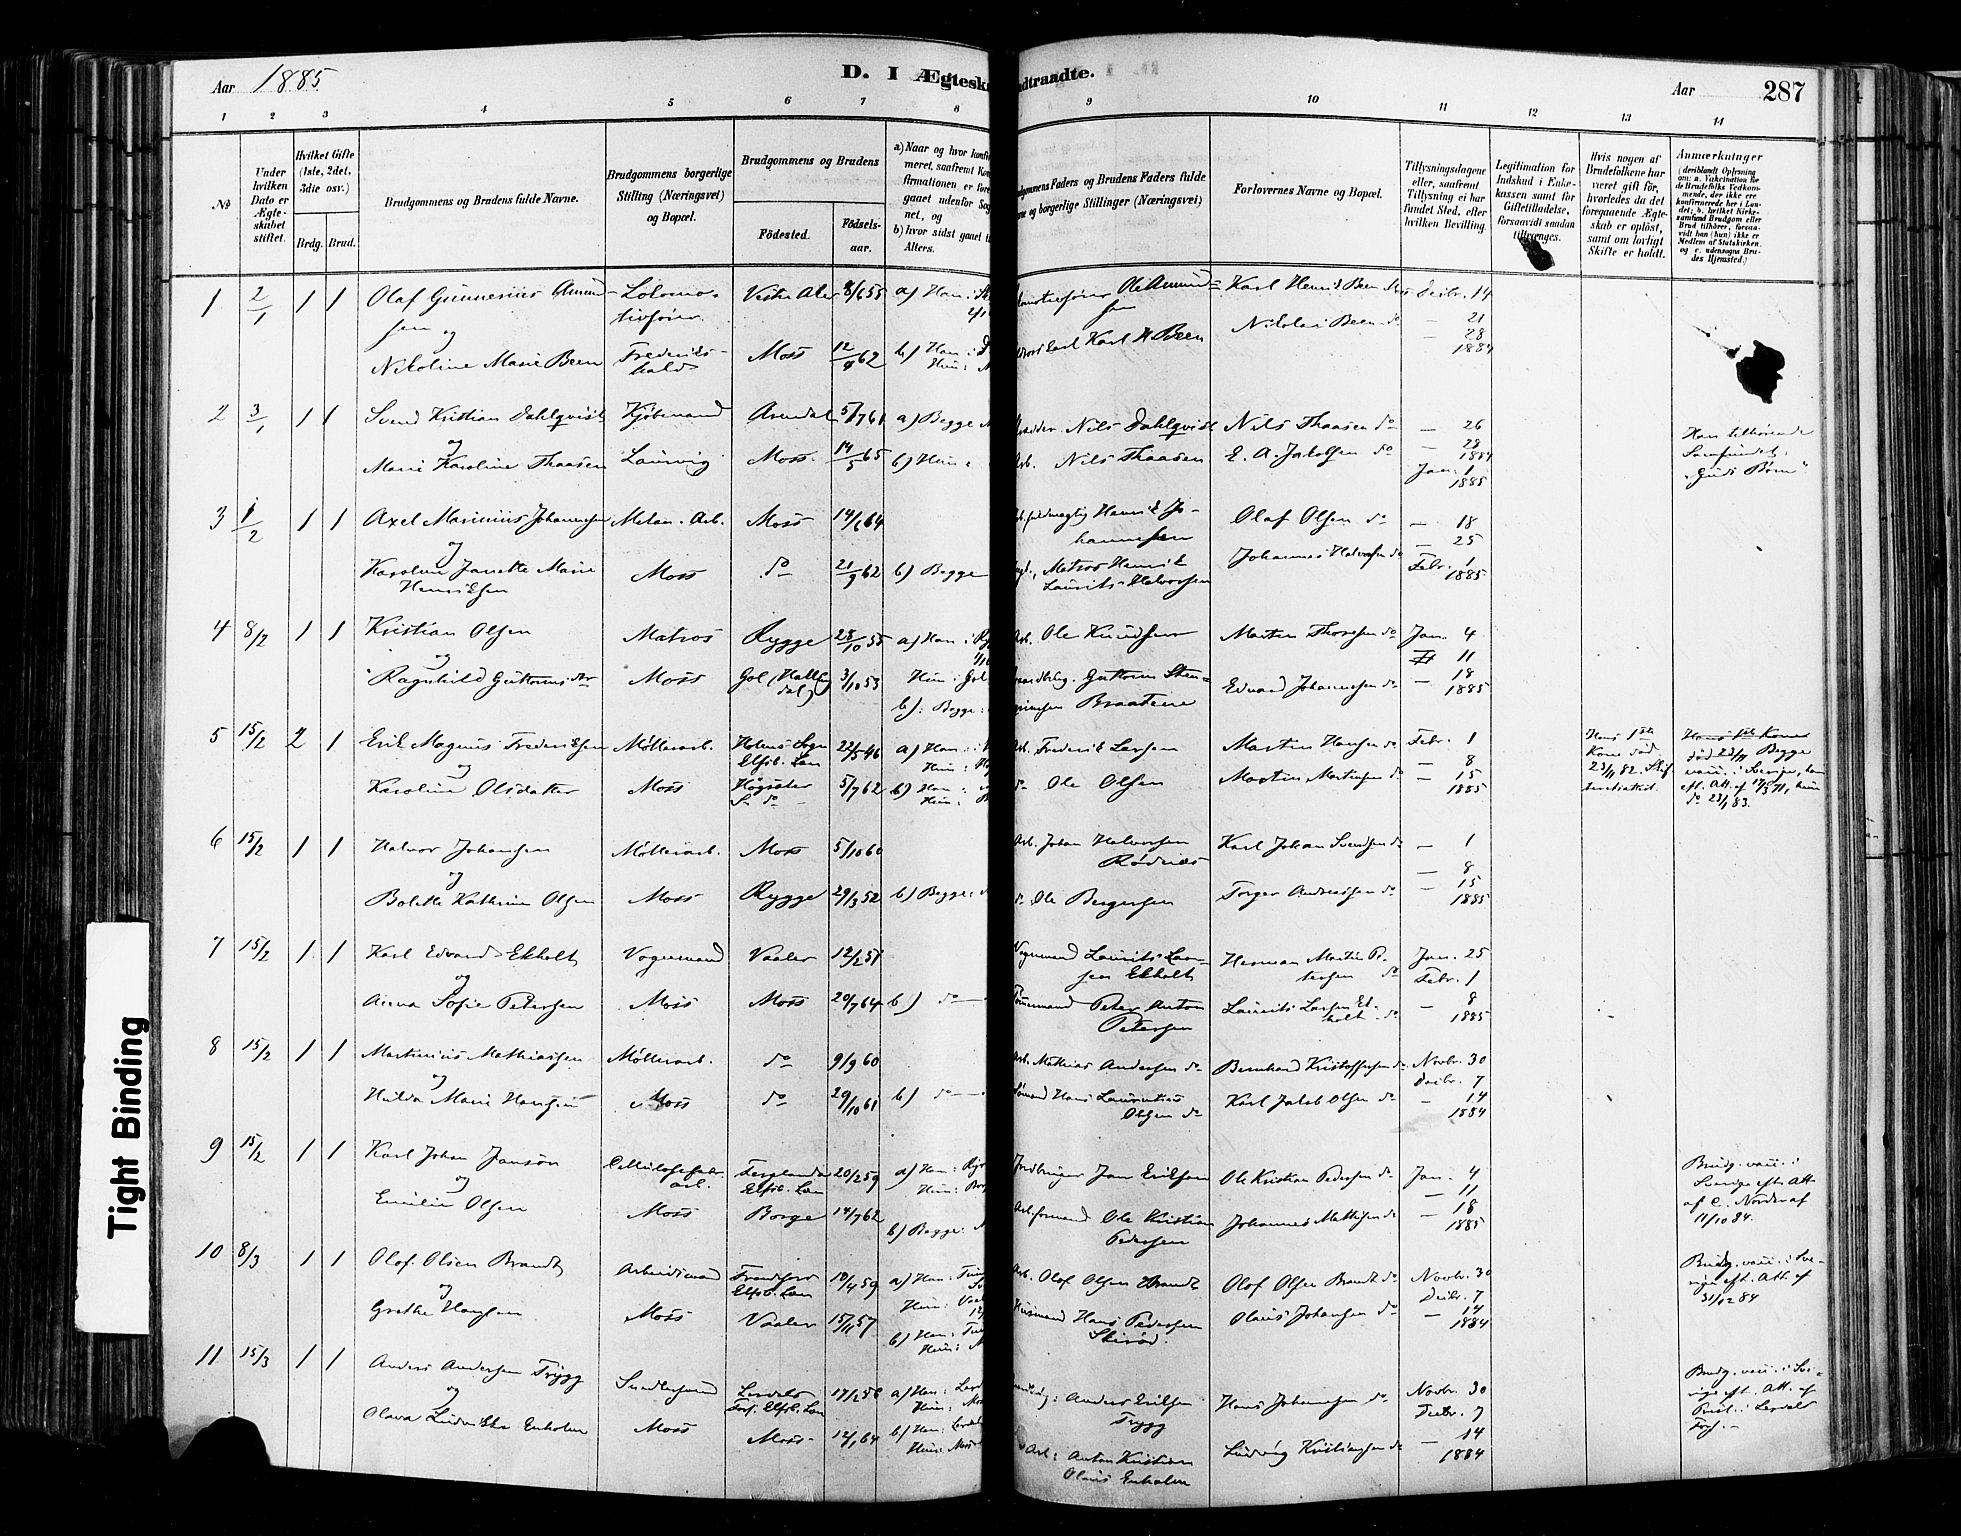 Aar 1885
D. I Ægtesk
ndtraadte.
Aar
287
1 2 3 4 5 6 7 8 9 10 11 12 13 14
№
Under hvilken Dato er Ægte-skabet stiftet.
Hvilket Gifte (1ste, 2det, 3die osv.)
Brdg. Brud.
Brudgommens og Brudens fulde Navne.
Brudgommens borgerlige Stilling (Næringsvei) og Bopæl.
Brudgommens og Brudens
Fødested.
Fødsels-aar.
a) Naar og hvor konfi
meret, saafremt Kon
firmationen er fore
gaaet udenfor Sog
net, og
b) hvor sidst gaaet ti
Alters.
dgommens Faders og Brudens Faders fulde
ne og borgerlige Stillinger (Næringsvei)
Forlovernes Navne og Bopæl.
Tillysningsdagene eller, saafremt Tillysning ei har fundet Sted, efter hvilken Bevilling.
Legitimation for Indskud i Enke-kassen samt for Giftetilladelse, forsaavidt saadan tiltrænges.
Hvis nogen af Brudefolkene har været gift før, hvorledes da det foregaaende Ægte-skab er opløst, samt om lovligt Skifte er holdt.
Anmærkninger
(deriblandt Oplysning om: a. Vakcination for de Brudefolks Vedkom-mende, der ikke ere konfirmerede her i Lan-det; b. hvilket Kirke-samfund Brudgom eller Brud tilhører, forsaa-vidt han (hun) ikke er Medlem af Statskirken, og c. udensogns Bru-des Hjemsted.)
1 2/1 1 1 Olaf Gunnerius Amund-
sen og
Nikoline Marie Been
Lokomo-
tivfører
Fredriks-
hald
8/6 55
Moss 12/9 62
a) Han:
b) Han:
Hun:
Ole Amund=
sen
Karl H Been
Karl Henrik Been
Nikolai Been do
Decbr. 14
— 21
— 28
1884
2 3/1 1 1 Svend Kristian Dahlqvist
og
Marie Karoline Thaasen
Kjøbmand
Laurvig
Arendal 5/7 61
Moss. 14/5 65
a) Begge
b) Hun:
Nils Dahlqvist
Arb. Nils Thaasen
Nils Thaasen do
E. A. Jakobsen do
— 26
— 28
1884
Jan. 1
1885
Han tilhørende
Samfundet
„Guds Børn“
3 1/2 1 1 Axel Marinius Johannesen
og
Karoline Janette Marie
Henriksen
Arb.
Moss
Moss 14/1 64
do 21/9 62
b) Begge
Henrik Jo-
hannesen
Matros Henrik
Laurits Halvorsen
Olaf Olsen do
Johannes Halvorsen do
— 18
— 25
Febr. 1
1885
4 8/2 1 1 Kristian Olsen
og
Ragnhild Guttormsdtr
Matros
Moss
Rygge 28/10 55
Gol (Halling
dal) 3/10 53
a) Han:
Hun: Gol
b): Begge:
Arb. Ole Knudsen
Guttorm Sten=
grimsen Braatene
Martin Thoresen do
Edvard Johannesen do
Jan. 4
11
— 18
1885
5 15/2 2 1 Erik Magnus Frederiksen
og
Karoline Olsdatter
Møllerarb.
Moss
Holms Sogn
Elfsb. Län 22/5 46
Högsäter
S. do 5/7 62
a) Han:
Hun:
b) Han:
Hun:
Arb. Frederik Larsen
do Ole Olsen
Martin Hansen do
Martin Martinsen do
Febr. 1
— 8
— 15
1885
Hans 1ste
Kone død
23/11 82.
Hans 1ste Kone
død 23/11 Begge
vacc. i Sverige, han
eft. Att. af 17/3 71, hun
do 23/1 83.
6 15/2 1 1 Halvor Johansen
og
Bolette Kathrine Olsen
Møllerarb.
Moss
Moss 5/10 60
Rygge 29/3 52
b) Begge:
Arb. Johan Halvorsen
Rødnæs
do Ole Bergersen
Karl Johan Svendsen do
Torger Andreassen do
— 1
— 8
— 15
1885
7 15/2 1 1 Karl Edvard Ekholt
og
Anna Sofie Petersen
Vognmand
Moss
Vaaler 12/2 51
Moss 20/7 64
b) do
Vognmand Laurits Lar-
sen Ekholt
Tømmermand Peter Anton
Petersen
Herman Martin Pe-
tersen do
Laurits Larsen Ek-
holt do
Jan. 25
Febr. 1
— 8
1885
8 15/2 1 1 Martinius Mathiassen
og
Hilda Marie Hansen
Møllerarb.
Moss
do 9/9 60
do 29/10 61
b) do
Arb. Mathias Andersen do
Sømand Hans Laurentius
Olsen do
Bernhard Kristoffersen do
Karl Jakob Olsen do
Novbr. 30
Decbr. 7
— 14
1884
9 15/2 1 1 Karl Johan Janson
og
Emilie Olsen
Cellulosefabr.
arb.
Moss
Elfsb. Län 20/2 59
Borge 14/7 62
a) Han:
Hun: Borg
b) Begge:
Jordbruger Jan Eriksen
Arb.formand Ole Kristian
Pedersen
Ole Kristian Pedersen do
Johannes Mathisen do
Jan. 4
— 11
— 18
1885
Brudg. vacc. i
Sverige efter Att.
af C. Nordin af
11/10 84.
10 8/3 1 1 Olof Olsen Brandt
og
Grethe Hansen
Arbeidsmand
Moss
Elfsb. Län 10/4 59
Vaaler 15/11 57
a) Han:
Hun: Vaal
b) Han:
Hun:
Arb. Olof Olsen Brandt
Husmand Hans Pedersen
Skirød.
Olof Olsen Brandt do
Olaus Johansen do
Novbr. 30
Decbr. 7
— 14
1884
Brudg. vacc. i Sve-
rige eft. Att. af
31/12 84
11 15/3 1 1 Anders Andersen Trygg
og
Olava Ludvikka Enholm
Moss
Lerdals
Fors. Elfsb. Län 17/2 58
Moss 12/1 64
a) Han: Lerd
Hun: Mos
b) Han: Lerdal
Hun: Moss
Anders Eriksen
Trygg
Arb: Anton Kristian
Olaus Enholm
Hans Johannesen do
Ludvig Kristiansen do
Novbr. 30
Decbr. 7
— 14
1884
Brudg. vacc. i Sve-
rige eft. Att. af
Præst. i Lerdals
Fors.
Tight Binding